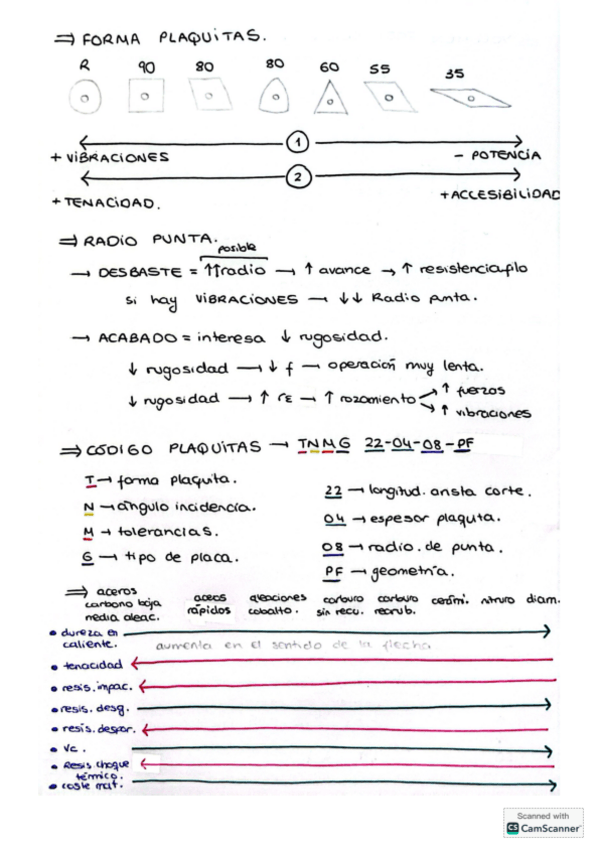 ⇒ FORMA PLAQUITAS.
R 90 80 80 60 55 35
1
+ VIBRACIONES - POTENCIA
2
+ TENACIDAD. + ACCESIBILIDAD
⇒ RADIO PUNTA.
posible
→ DESBASTE = ↑↑radio → ↑ avance → ↑ resistencia filo
si hay VIBRACIONES → ↓↓ Radio punta.
→ ACABADO = interesa ↓ rugosidad.
↓ rugosidad → ↓ f → operación muy lenta.
↓ rugosidad → ↑ rε → ↑ rozamiento ↑ fuerzas
↑ vibraciones
⇒ CÓDIGO PLAQUITAS → TNMG 22-04-08-PF
T → forma plaquita.
N → ángulo incidencia.
M → tolerancias.
G → tipo de placa.
22 → longitud. arista corte.
04 → espesor plaquita.
08 → radio. de punta.
PF → geometría.
⇒ aceros carbono baja media aleac.
aceros rápidos
aleaciones cobalto.
carburo sin recu.
carburo recrub.
cerámi.
nitruro
diam.
• dureza en caliente. aumenta en el sentido de la flecha.
• tenacidad
• resis. impac.
• resis. desg.
• resis. despor.
• Vc.
• Resis choque térmico.
• coste mat.
Scanned with
CS CamScanner